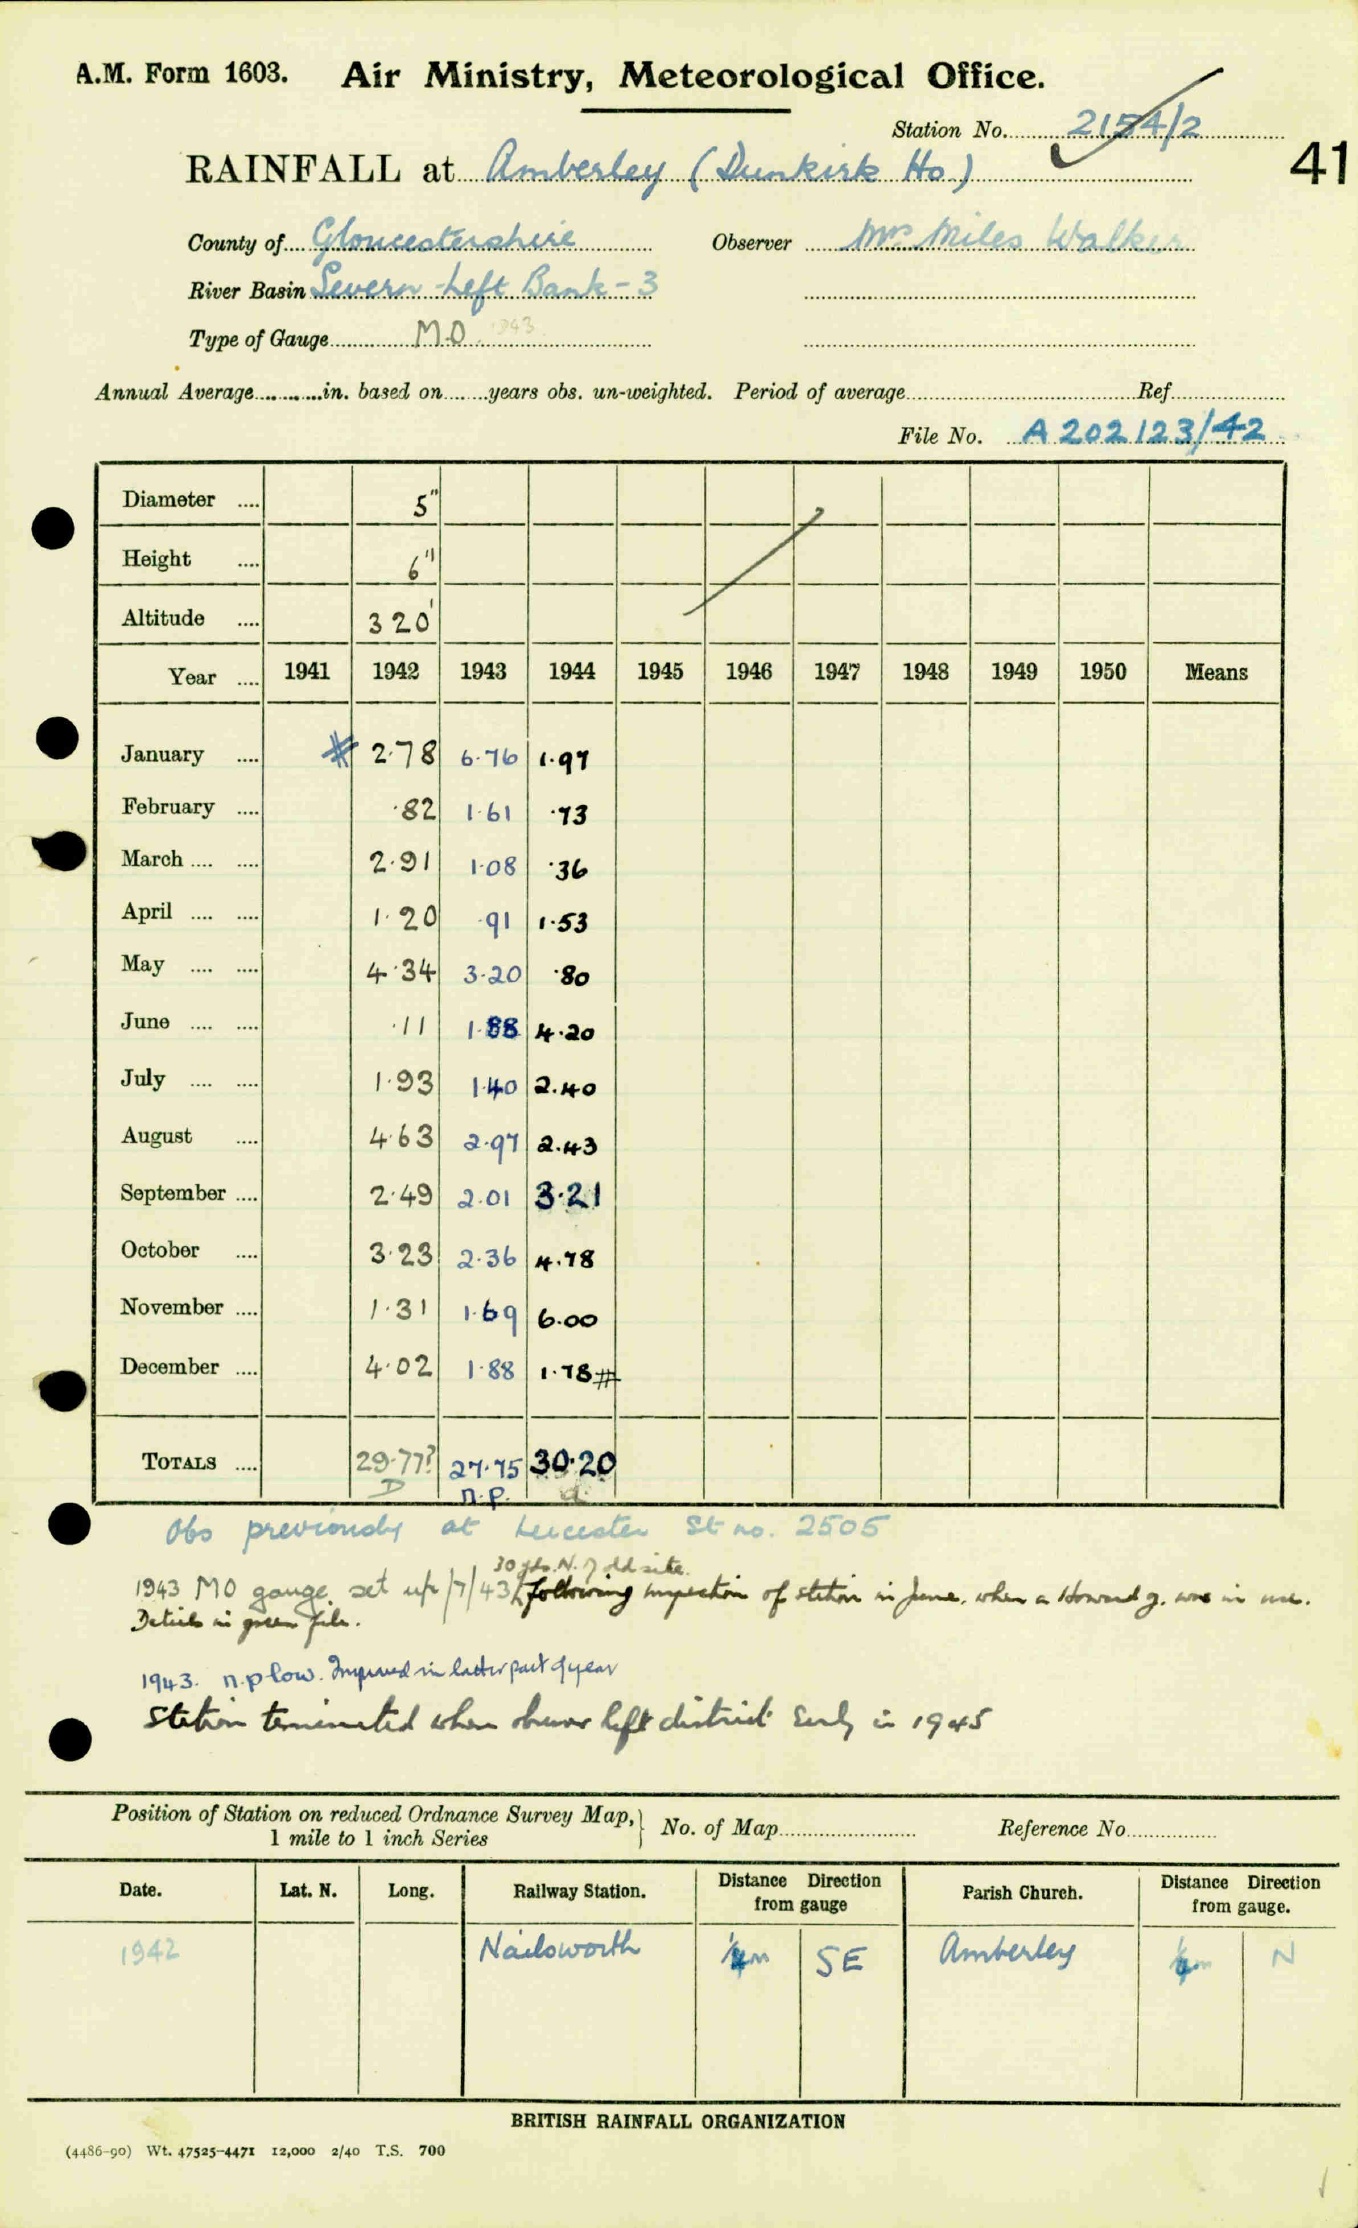 A.M. Form 1603. Air Ministry, Meteorological Office.
Station No. 2154/2
41
RAINFALL at Amberley (Dunkirk Ho)
County of Gloucestershire Observer Mrs Miles Walker
River Basin Severn - Left Bank - 3
Type of Gauge M.O. 1943
Annual Average in. based on years obs. un-weighted. Period of average Ref.
File No. A 202123/42
Diameter 5"
Height 6"
Altitude 320'
Year 1941 1942 1943 1944 1945 1946 1947 1948 1949 1950 Means
January # 2.78 6.76 1.97
February .82 1.61 .73
March 2.91 1.08 .36
April 1.20 .91 1.53
May 4.34 3.20 .80
June .11 1.88 4.20
July 1.93 1.40 2.40
August 4.63 2.97 2.43
September 2.49 2.01 3.21
October 3.23 2.36 4.78
November 1.31 1.69 6.00
December 4.02 1.88 1.78 #
TOTALS 29.77? 27.75 30.20
D n.p. d.
Obs previously at Leicester St no. 2505
30 yds. N. of old site.
1943 MO gauge set up 1/7/43 following inspection of station in June, when a Howard g. was in use.
Details in green file.
1943. n.p low. Improved in latter part of year
Station terminated when observer left district Early in 1945
Position of Station on reduced Ordnance Survey Map, 1 mile to 1 inch Series } No. of Map Reference No.
Date. Lat. N. Long. Railway Station. Distance Direction from gauge Parish Church. Distance Direction from gauge.
1942 Nailsworth SE Amberley N
BRITISH RAINFALL ORGANIZATION
(4486-90) Wt. 47525-4471 12,000 2/40 T.S. 700